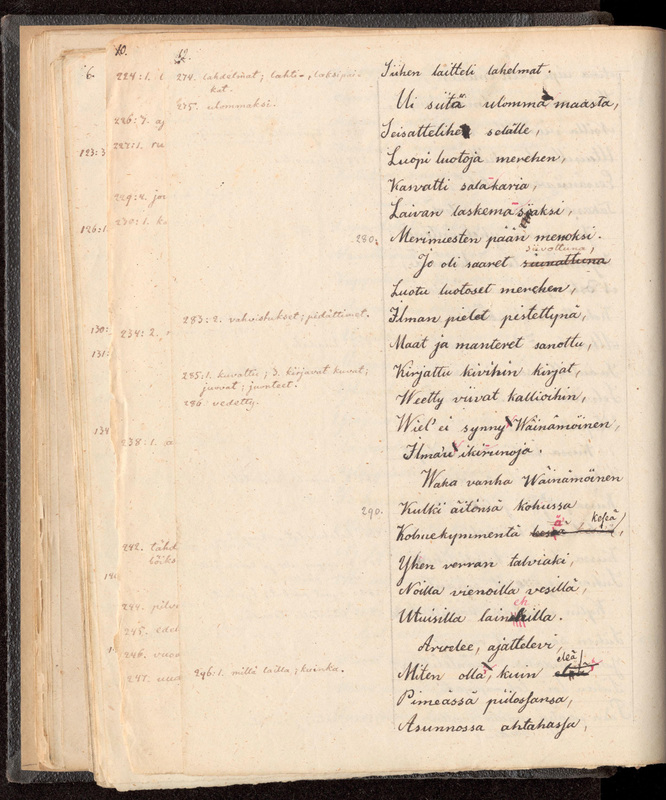 10.
12.
6.
224:1.
226:7.
227:1.
123:3
229:4.
230:1.
126:1
130:
234: 2.
131:
134
238:1.
242. tähd
244. pilv
245.
246.
247.
274. lahdelmat; lahti-, laksipai-
kat.
275. ulommaksi.
283: 2. vahvistukset; pidättimet.
285:1. kuvattu; 3. kirjavat kuvat;
juovat; juonteet.
286. vedetty.
296:1. millä lailla; kuinka.
Siihen laitteli lahelmat.
Ui siitä ulomma maasta,
Seisattelihe selälle,
Luopi luotoja merehen,
Kasvatti salakaria,
Laivan laskemasijaksi,
280. Merimiesten pään menoksi.
siivottuna,
Jo oli saaret siunattuna
Luotu luotoset merehen,
Ilman pielet pistettynä,
Maat ja manteret sanottu,
Kirjattu kivihin kirjat,
Weetty viivat kallioihin,
Wiel' ei synny Wäinämöinen,
Ilmau ikirunoja.
Waka vanha Wäinämöinen
290. Kulki äitönsä kohussa
Kolmekymmentä kesiä
Yhen verran talviaki,
Noilla vienoilla vesillä,
Utuisilla lainehilla.
Arvelee, ajattelevi,
Miten olla, kuin eleä
Pimeässä piilossansa,
Asunnossa ahtahassa,